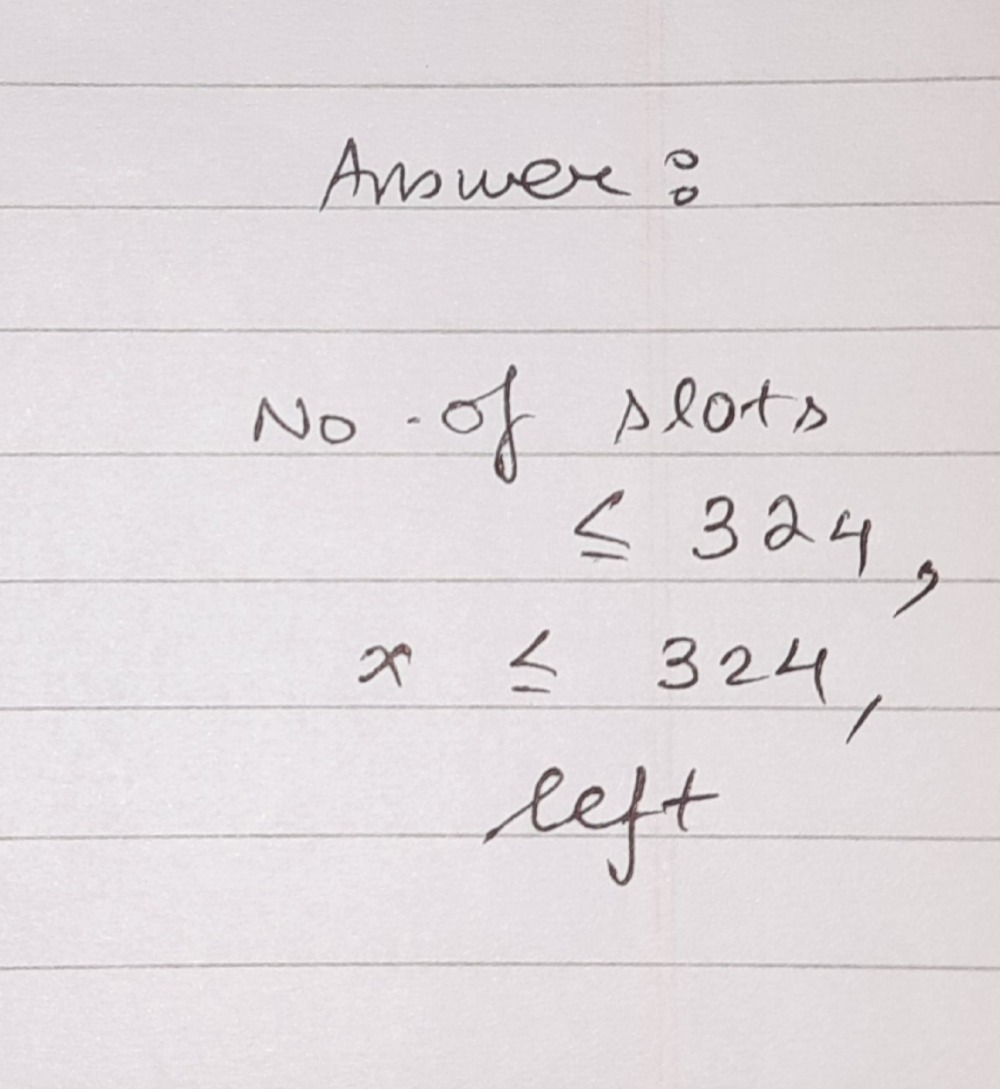 Answer :
No. of slots
≤ 324,
x ≤ 324,
left